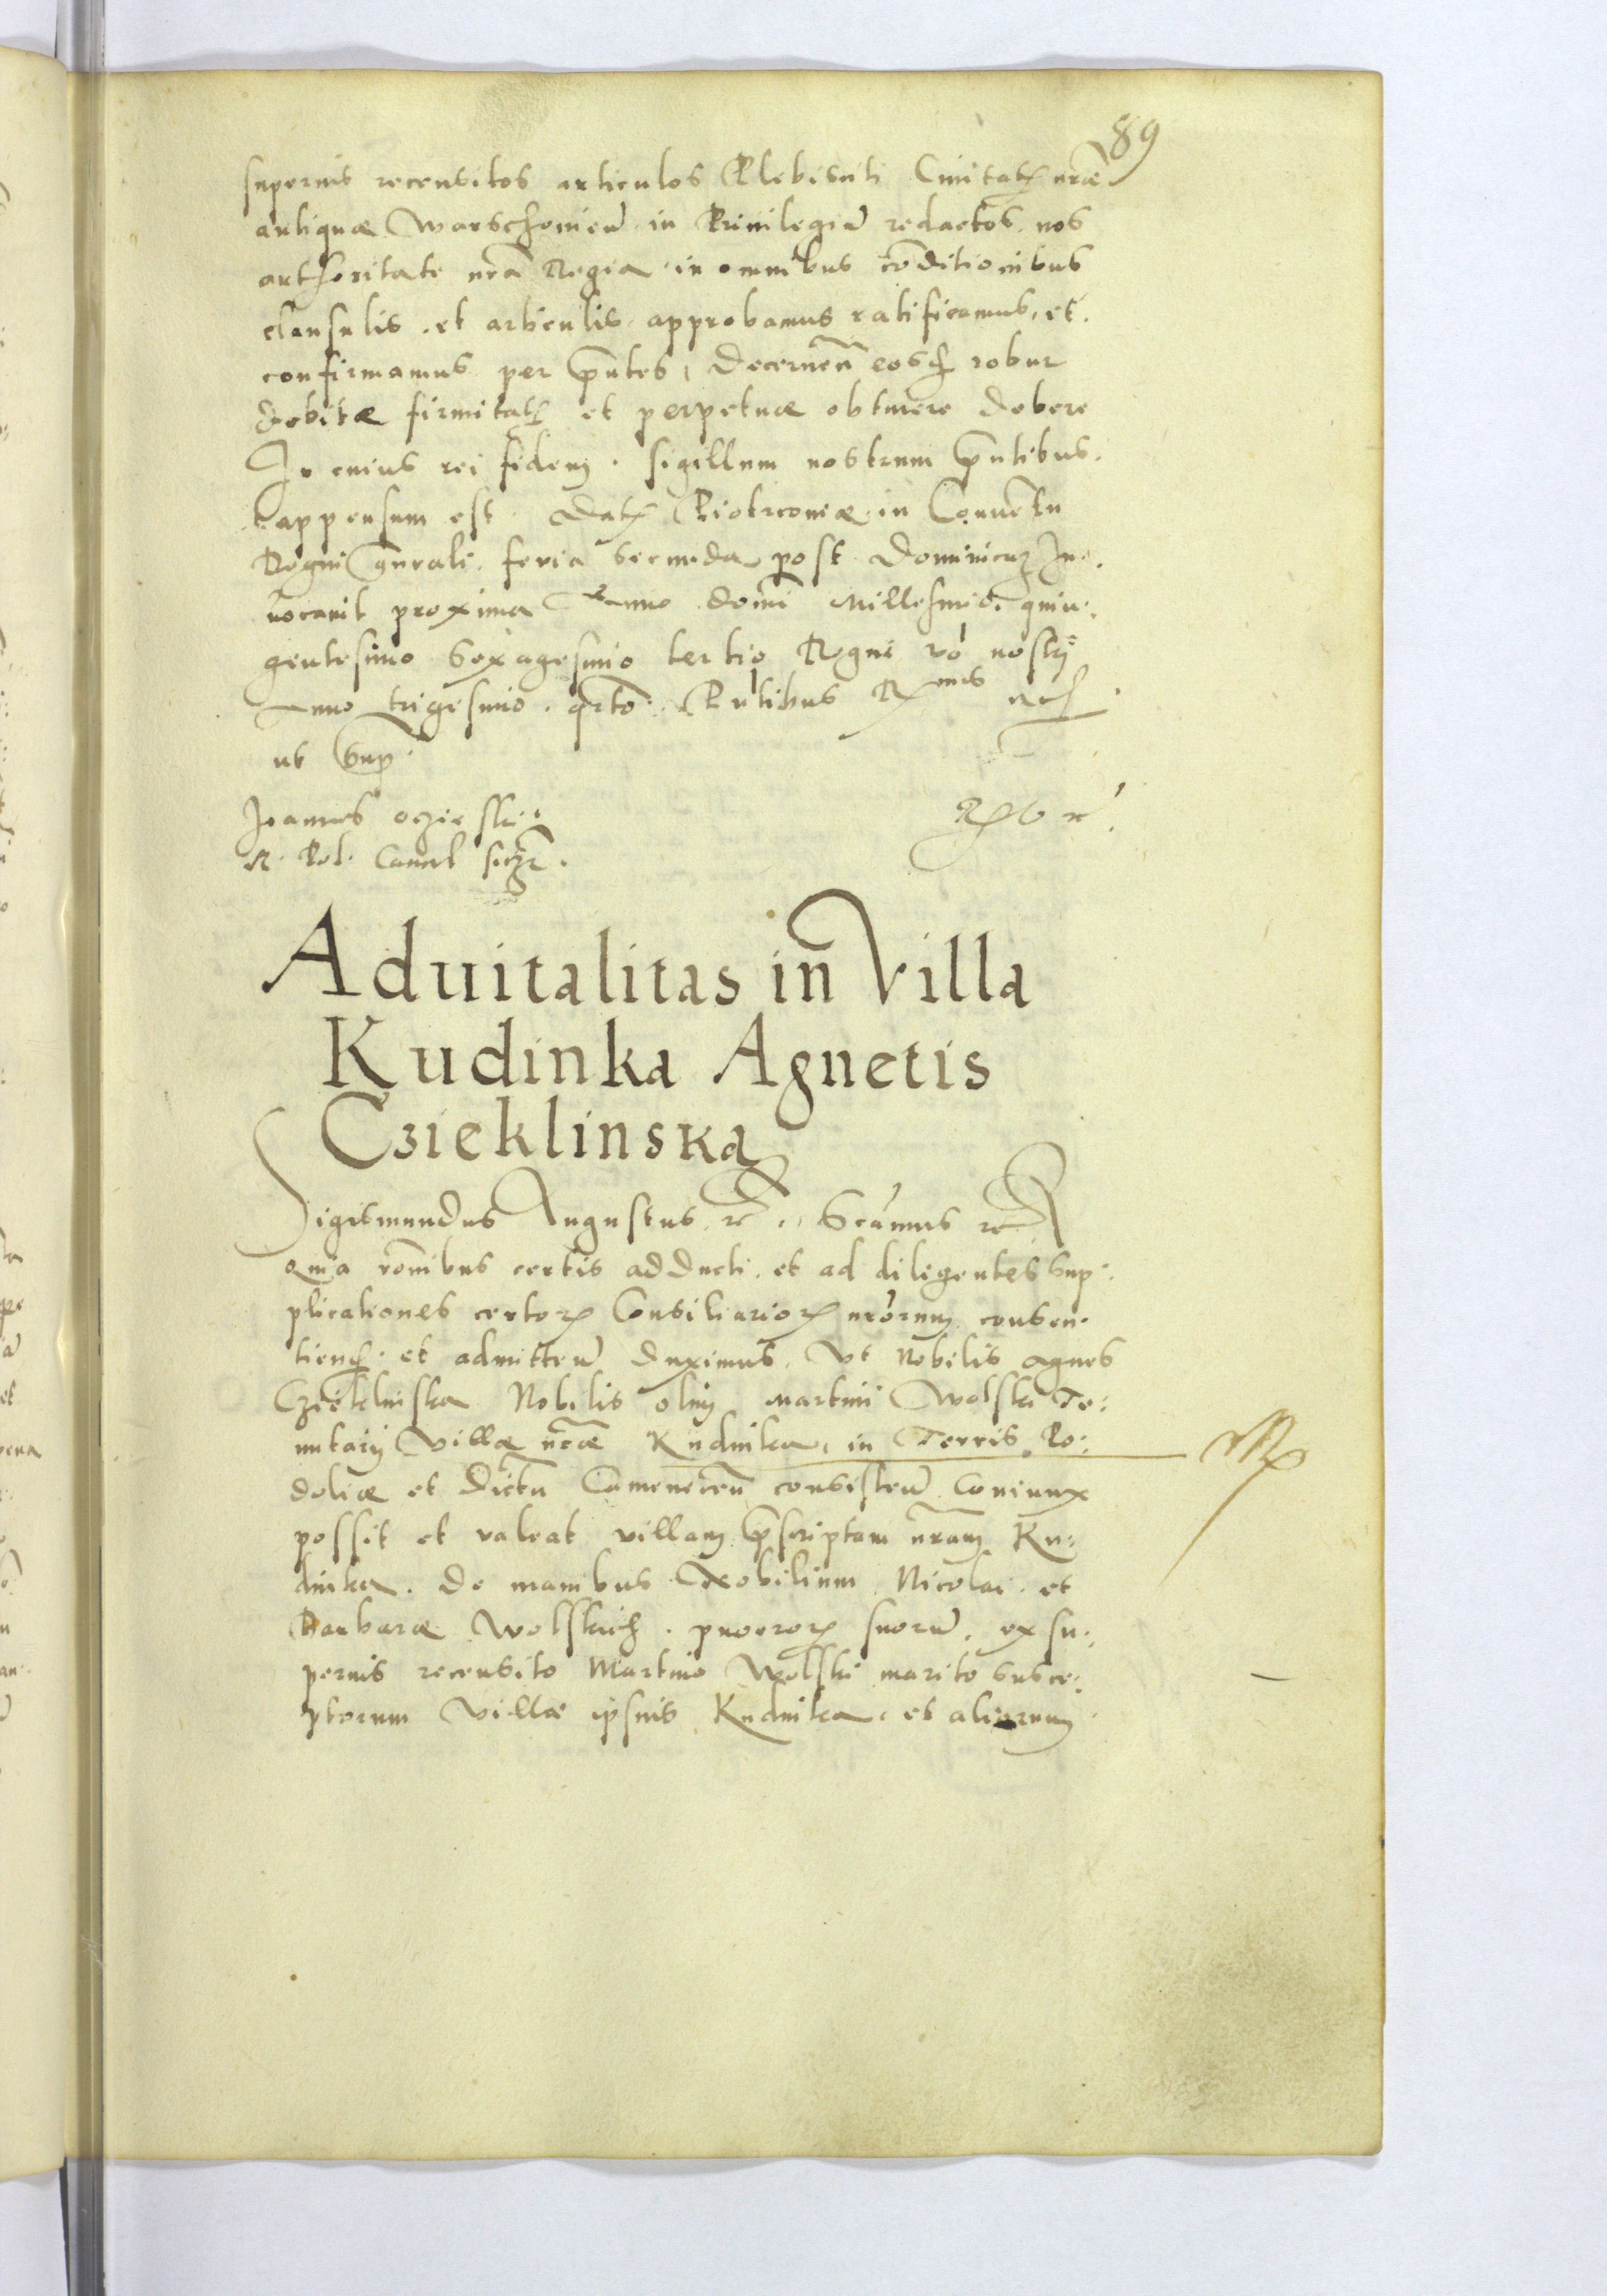 89
superius recensitos articulos Plebisciti Ciuitat. nrae
antiquae Warschouien in Priuilegiũ redactos. nos
authoritate nrã Regia in omnibus cõditionibus
clausulis et articulis approbamus ratificamus, et
confirmamus per pñtes, Decernen eosq robur
debitae firmitat. et perpetuae obtinere debere
In cuius rei fidem. sigillum nostrum pñtibus.
appensum est. Dat. Piotrcouiae in Conuẽtu
Regni gnrali. feria secunda post Dominicã In:
uocauit proxima Anno domi Millesimo quin:
gentesimo sexagesimo tertio Regni võ nostri
Anno trigesimo qrto. Pntibus Rmis
ut sup.
Joannes oczieski
R. Pol. Cancel
Aduitalitas in Villa
Kudinka Agnetis
Czieklinska
Sigismundus Augustus rc. Scamus rc
quia rõnibus certis adducti et ad diligentes sup:
plicationes certor. Consiliarior. nrõrum consen:
tiend. et admitten duximus. Vt Nobilis Agnes
Czieklinska Nobilis olim Martini Wolski Te:
nutarij Villae nrae Kudinka, in Terris Po:
doliae et Dictu Camenecen consisten Coniunx
possit et valeat villam pscriptam nram Ku:
dinka. De manibus Nobilium Nicolai et
Barbarae Wolskich. pueror. suorũ. ex su:
perius recensito Martino Wolski marito susce:
ptorum Villae ipsius Kudinka. et aliorum